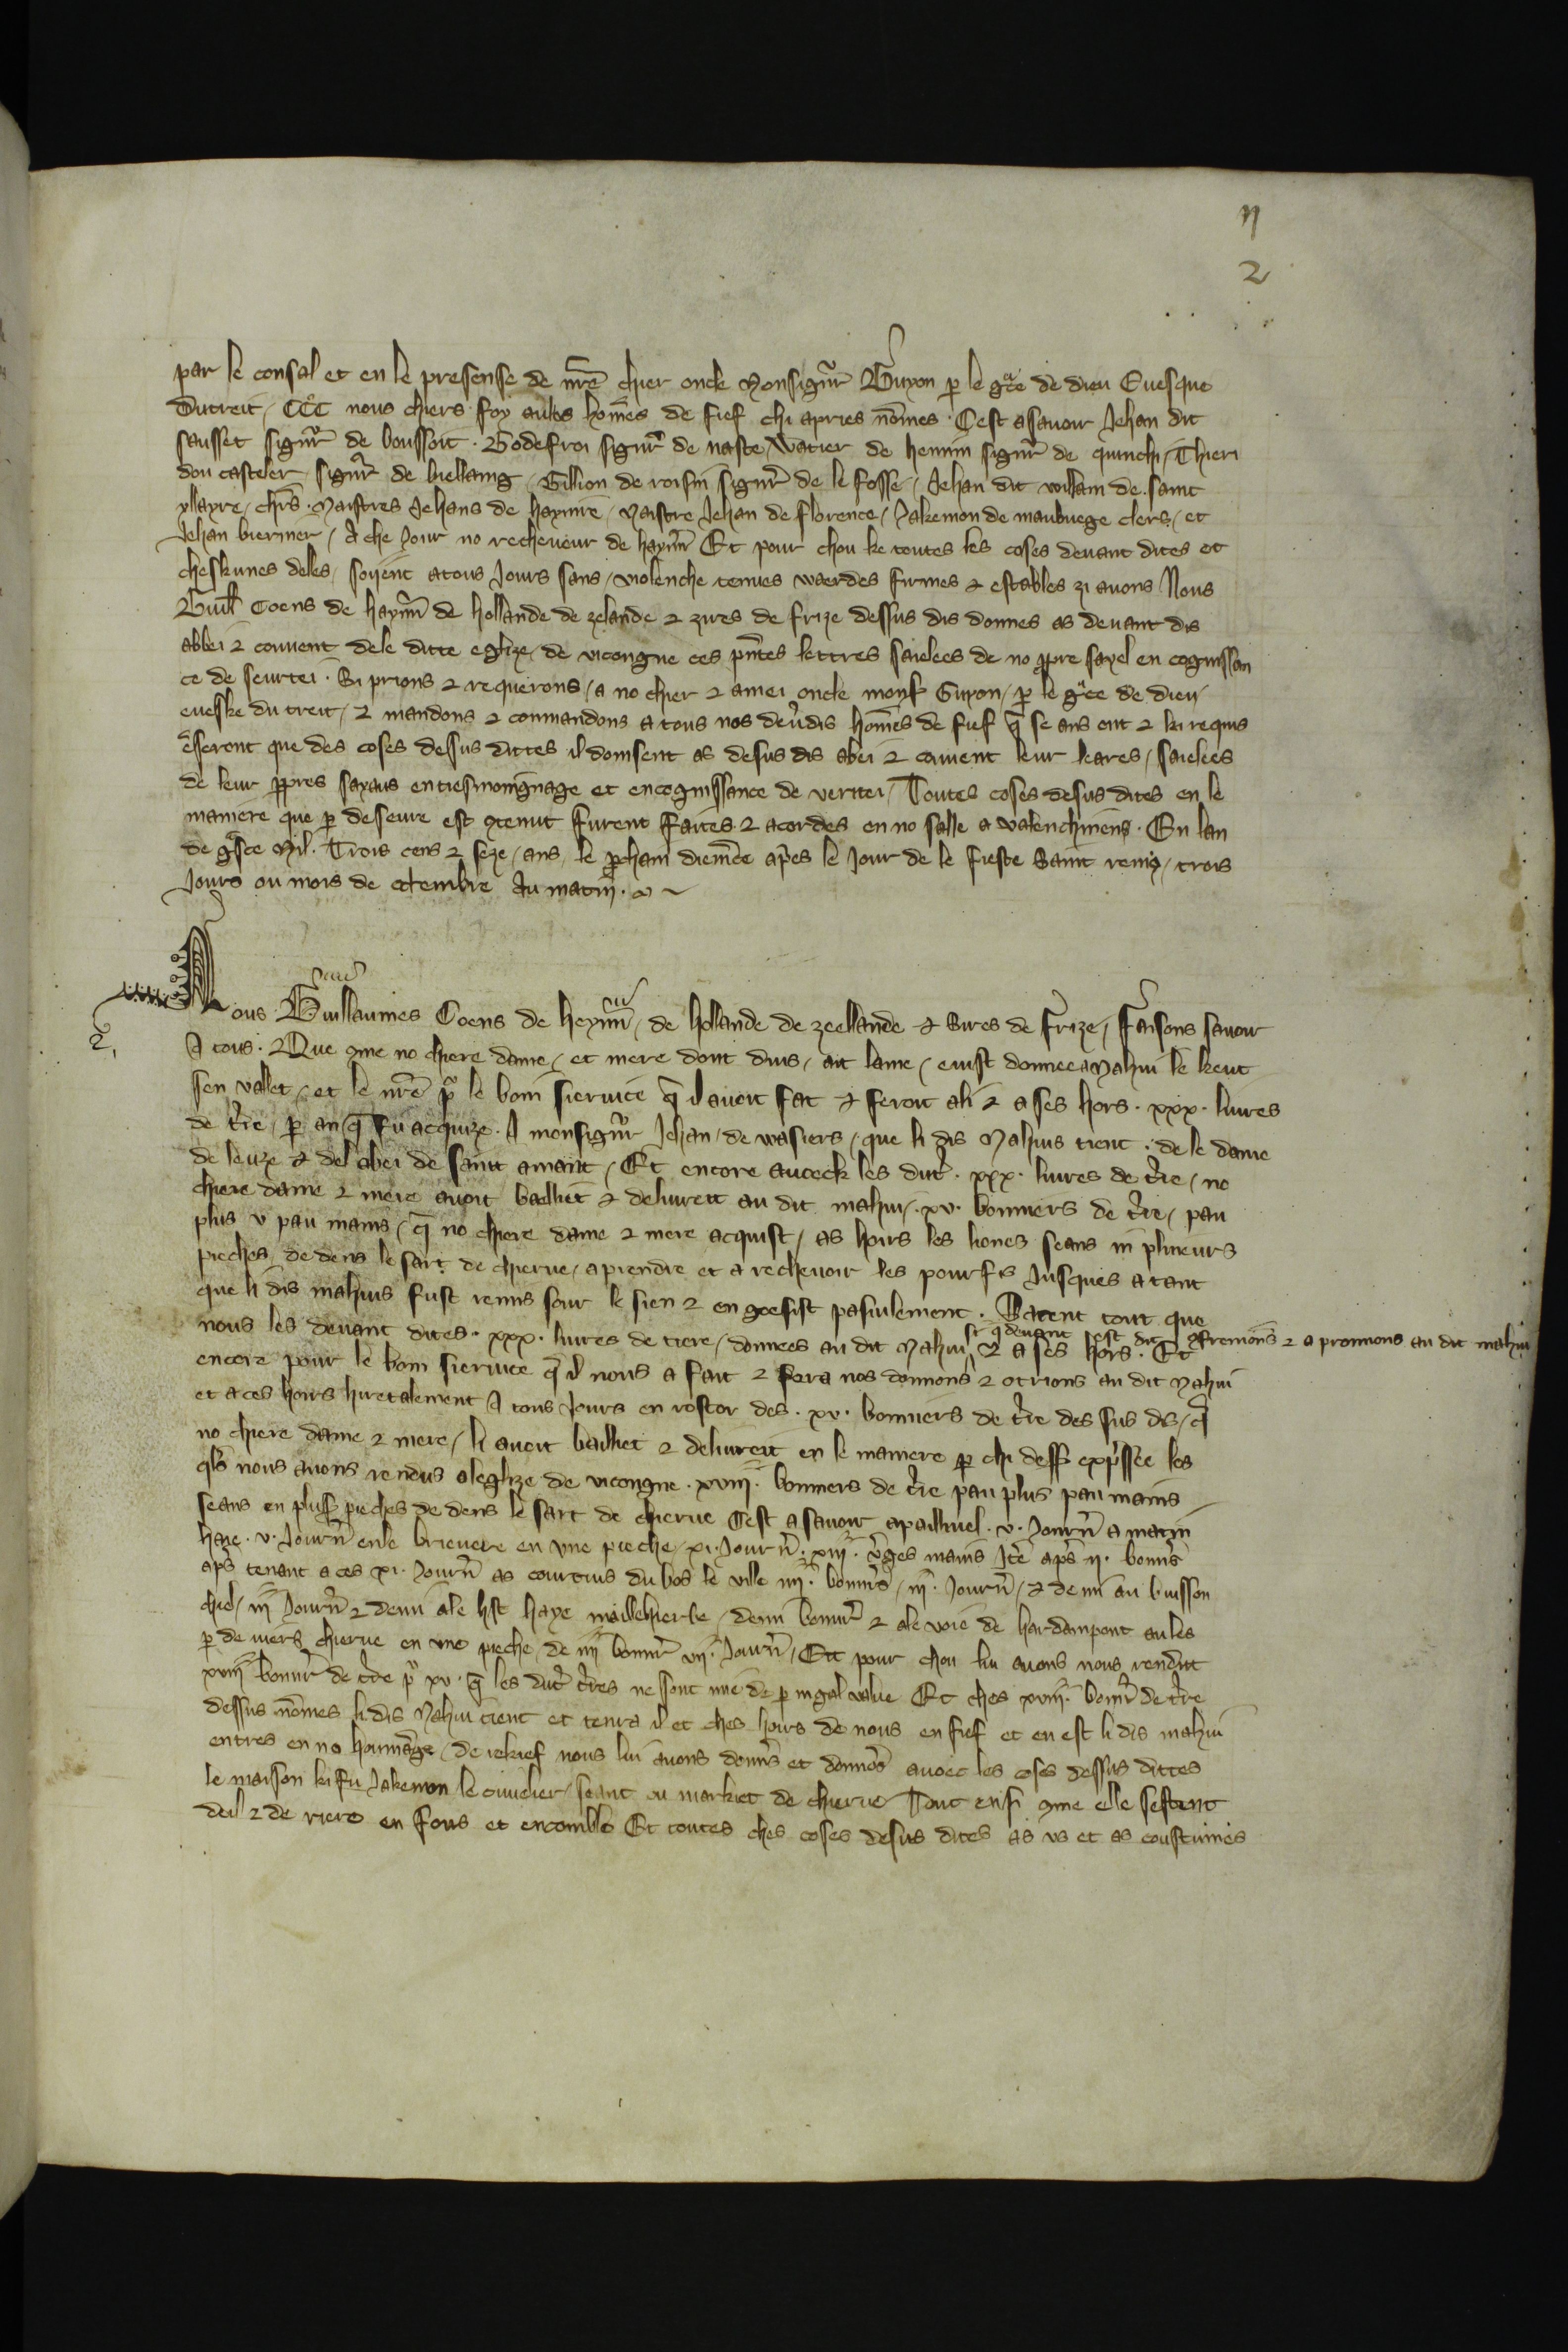 ij
2
par le consal et en le presense de nrē chier oncle Monsignur̃ Guyon p le grãce de dieu Euesque
dutreit / Et nous chiers foyaules hom̄es de fief chi apries nōmes . Cest asauoir Jehan dit
sausset signur̃ de boussoit . Godefroi signur̃ de naste / watier de hennin signur̃ de quinchi / Thieri
dou casteler signur̃ de biellaing / Gillion de roisin signur̃ de le fosse / Jehan dit willam de saint
yllayre / chrs̄ . Maistres Jehans de haynnie / Maistre Jehan de florence / Jakemon de maubuege clers / et
Jehan bierinier / A che Jour no recheueur de haynn̄ Et pour chou ke toutes les coses deuant dites et
cheskunes delles / soyent atous Jours sans / violenche tenues waerdes firmes ⁊ estables zi auons Nous
Guill̄ Coens de haynn̄ de hollande de zelande ⁊ zires de frize dessus dis donnes as deuant dis
abbei ⁊ couuent dele ditte eglize / de vicongne ces pn̄tes lettres saielees de no ppre sayel en cognissan
ce de seurtei . Si prions ⁊ requerons / a no chier ⁊ amei oncle mons̄ Guyon / p le grãce de dieu
eueske dutreit / ⁊ mandons ⁊ conmandons a tous nos deūdis hom̄es de fief q̄ se ans ent ⁊ ki requis
ēsseront que des coses dessus dittes il doinsent as desus dis abei ⁊ couuent leur lettres / saielees
de leur ppres sayaus entiesmoingnage et encognissance de veritei / Toutes coses desus dites en le
maniere que p deseure est 9tenut furent faites ⁊ acordes en no salle a valenchiens . En lan
de grãce Mil . Trois cens ⁊ seze / ans / le pcham diemēce ap̄es le Jour de le fieste Saint remy / trois
Jours ou mois de octembre Au matin .
2,
Nous Guillaumes Coens de heynn̄ / de hollande de zeellande ⁊ Sires de frize / Faisons sauoir
A tous . Que 9me no chiere dame / et mere dont dius / ait lame / euist donnee a Mahiu le keut
sen vallet / et le nrē p̄ le boin sieruice q̄ il auoit fat ⁊ feroit ali ⁊ a ses hors . xxx . liures
de t̄re / p an q̄ fu acquize . A monsignur̃ Jehan / de wasiers / que li dis Mahius tient . de le dame
de leuze ⁊ del abei de saint amant / Et encore aueck les dit̄ . xxx . liures de t̄re / no
chiere dame ⁊ mere auoit bailliet ⁊ deliureit au dit mahiu / . xv . bonniers de t̄re / pau
plus v pau mains / q̄ no chiere dame ⁊ mere acquist / as hoirs les lionés seans in plineurs
pieches / de dens le sart de chierue / a prendre et a recheuoir les pourfis Jusques a tant
que li dis mahius fust remis sour le sien ⁊ en goesist pasiulement . Satent tout que
nous les deuant dites . xxx . liures de tiere / donnees au dit Mahiu si q̄ deuant est dit ⁊ a ses hors . Et 9fremons ⁊ a prouuons au dit mahiu
encore pour le boin sieruice q̄ il nous a fait ⁊ fera nos donnons ⁊ otrions au dit Mahiu
et aces hoirs hiretalement A tous Jours en restor des . xv . bonniers de t̄re des sus dis / q̄
no chiere dame ⁊ mere / li auoit bailliet ⁊ deliureit en le maniere p chi dess̄ exp̄ssee les
qls̄ nous auons rendus aleglize de vicongne . xviij . bonniers de t̄re pau plus pau mains
seans en pluss̄ pieches de dens le sart de chierue Cest a sauoir apailluel . v . Journ̄ a matin
haie . v . Journ̄ enle brieuere en vne pieche / xi . Journ̄ . xiij . v̄ges mains Itē ap̄s ij . bonn̄s
ap̄s tenant a ces xi . Journ̄ as courtius du bos le ville iiij . bonn̄s / iij . Journ̄ / ⁊ demi au buisson
chiel / iij Journ̄ ⁊ demi ale list haye maillekierke / demi bonnir̄ ⁊ ale voie de hardampont au les
p de viers chierue en vne pieche / de iiij bonnir̄ vij . Journ̄ / Et pour chou lui auons nous rendut
xviij bonnir̄ de t̄re p̄ xv . q̄ les dit̄ t̄res ne sont mie de p ingal value Et ches xviij . bonnir̄ de t̄re
dessus nōmes li dis Mahiu tient et tenra il et ches hoirs de nous en fief et en est li dis mahiu
entres en no hommage / de rekief nous lui auons donn̄s et donnōs auoec les coses dessus dittes
le maison ki fu Jakemon le cuuelier / seant ou markiet de chierue Tout ensi 9me elle sestent
deil ⁊ de riere en fons et encomble Et toutes ches coses desus dites as vs et as coustumes